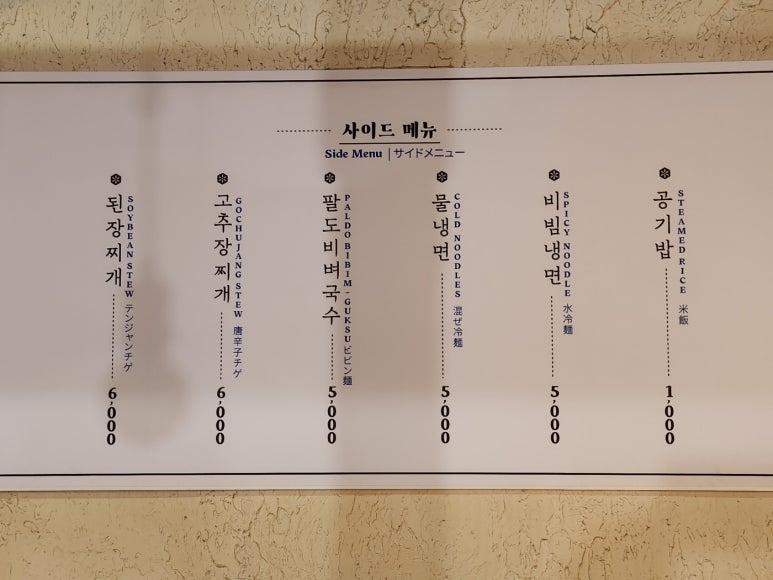 사이드 메뉴
Side Menu | サイドメニュー
된장찌개
SOYBEAN STEW テンジャンチゲ
6,000
고추장찌개
GOCHUJANG STEW 唐辛子チゲ
6,000
팔도비벼국수
PALDO BIBIM-GUKSU ビビン麺
5,000
물냉면
COLD NOODLES 混ぜ冷麺
5,000
비빔냉면
SPICY NOODLE 水冷麺
5,000
공기밥
STEAMED RICE 米飯
1,000